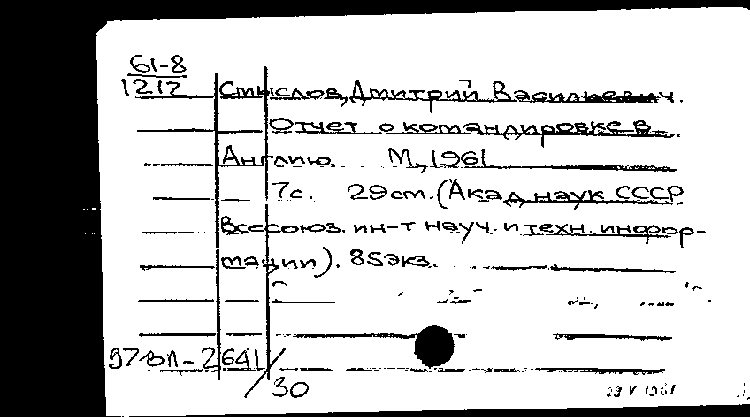 61-8
1212
Смыслов, Дмитрий Васильевич.
Отчет о командировке в
Англию. М., 1961
7с. 29см. (Акад. наук СССР
Всесоюз. ин-т науч. и техн. инфор-
мации). 85экз.
641
30